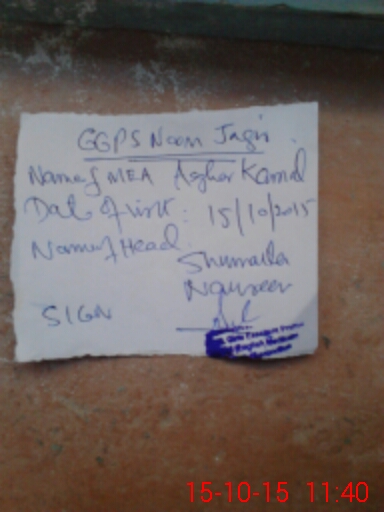 GGPS Noon Jagir
Name of MEA Azhar Kamal
Date of visit: 15/10/2015
Name of Head
Shumaila
Noureen
SIGN
English Medium
15-10-15 11:40